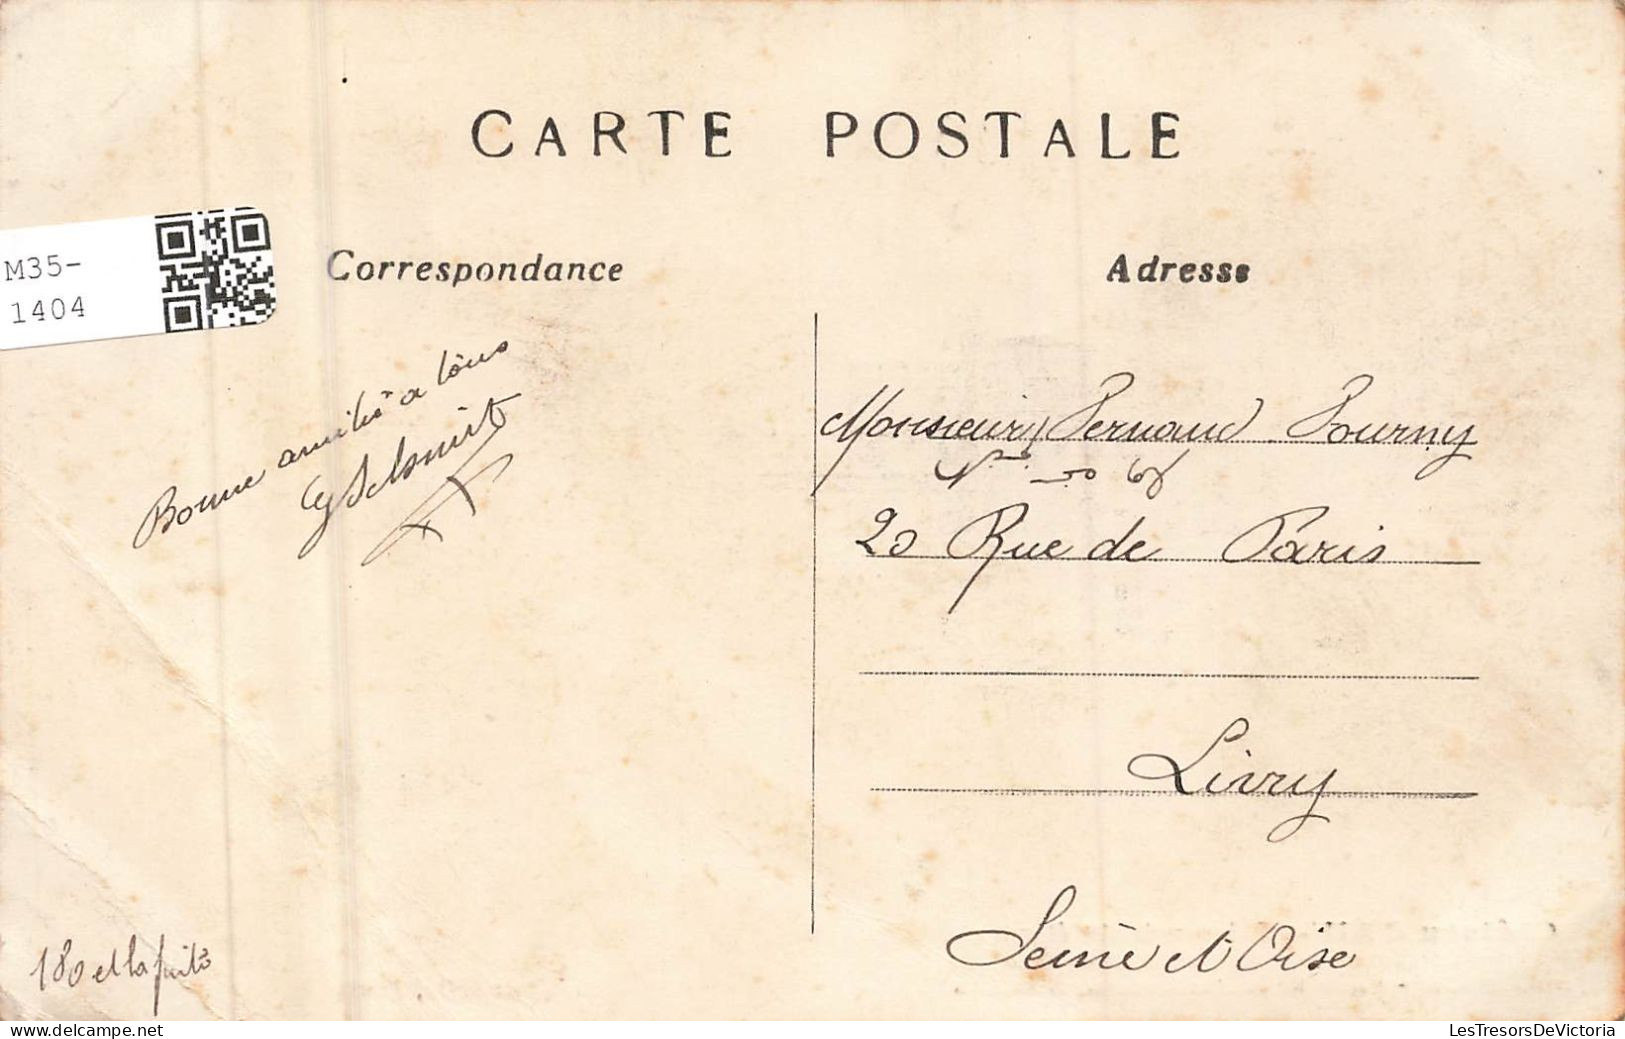 CARTE POSTALE
M35-
1404
Correspondance
Adresse
Bonne amitié a tous
Monsieur Fernand Fourny
20 Rue de Paris
Livry
Seine et Oise
180 et la suite
LesTresorsDeVictoria